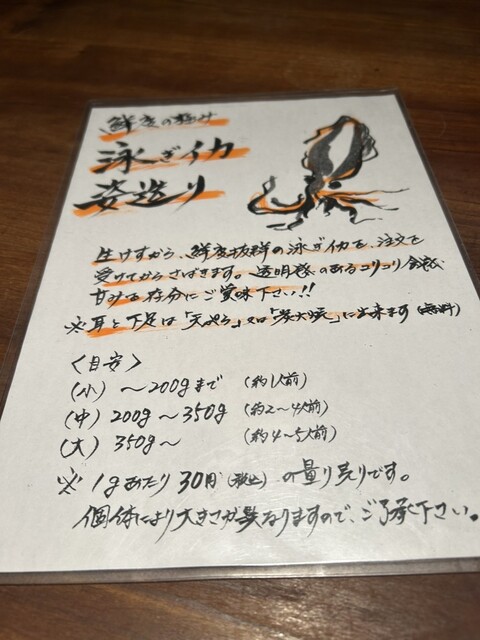 鮮度の極み
泳ぎイカ
姿造り
生けすから、鮮度抜群の泳ぎイカを、注文を
受けてからさばきます。透明感のあるコリコリ食感、
甘みを存分にご賞味下さい!!
※耳と下足は「天ぷら」又は「炭火焼」に出来ます(無料)
〈目安〉
(小) 〜200gまで (約1人前)
(中) 200g〜350g (約2〜4人前)
(大) 350g〜 (約4〜5人前)
※ 1gあたり30円(税込)の量り売りです。
個体により大きさが異なりますので、ご了承下さい。